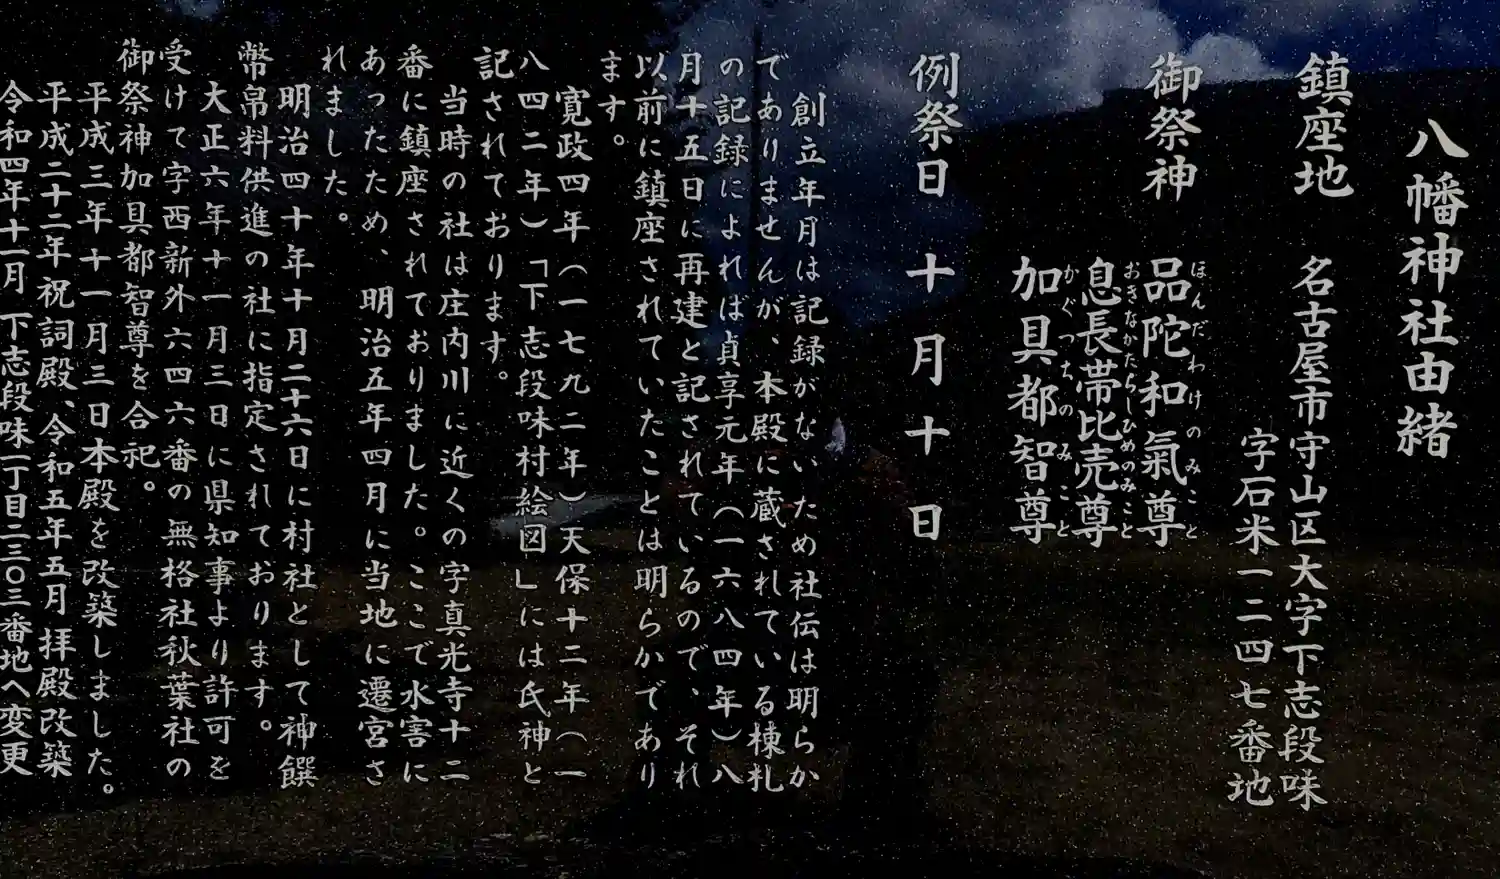 八幡神社由緒
鎮座地　名古屋市守山区大字下志段味
字石米一二四七番地
御祭神　品陀和氣尊
ほんだわけのみこと
息長帯比売尊
おきながたらしひめのみこと
加具都智尊
かぐつちのみこと
例祭日　十月十日
創立年月は記録がないため社伝は明らか
でありませんが、本殿に蔵されている棟札
の記録によれば貞享元年（一六八四年）八
月十五日に再建と記されているので、それ
以前に鎮座されていたことは明らかであり
ます。
寛政四年（一七九二年）天保十二年（一
八四二年）「下志段味村絵図」には氏神と
記されております。
当時の社は庄内川に近くの字真光寺十二
番に鎮座されておりました。ここで水害に
あったため、明治五年四月に当地に遷宮さ
れました。
明治四十年十月二十六日に村社として神饌
幣帛料供進の社に指定されております。
大正六年十一月三日に県知事より許可を
受けて字西新外六四六番の無格社秋葉社の
御祭神加具都智尊を合祀。
平成三年十一月三日本殿を改築しました。
平成二十二年祝詞殿、令和五年五月 拝殿改築
令和四年十一月 下志段味一丁目二三〇三番地へ変更